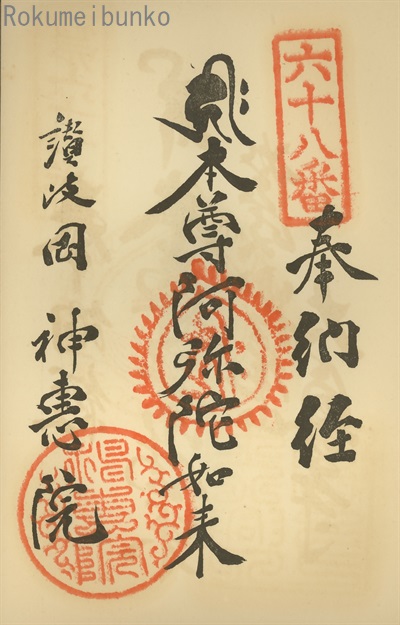 Rokumeibunko
六十八番
奉納経
本尊阿弥陀如来
讃岐国 神恵院